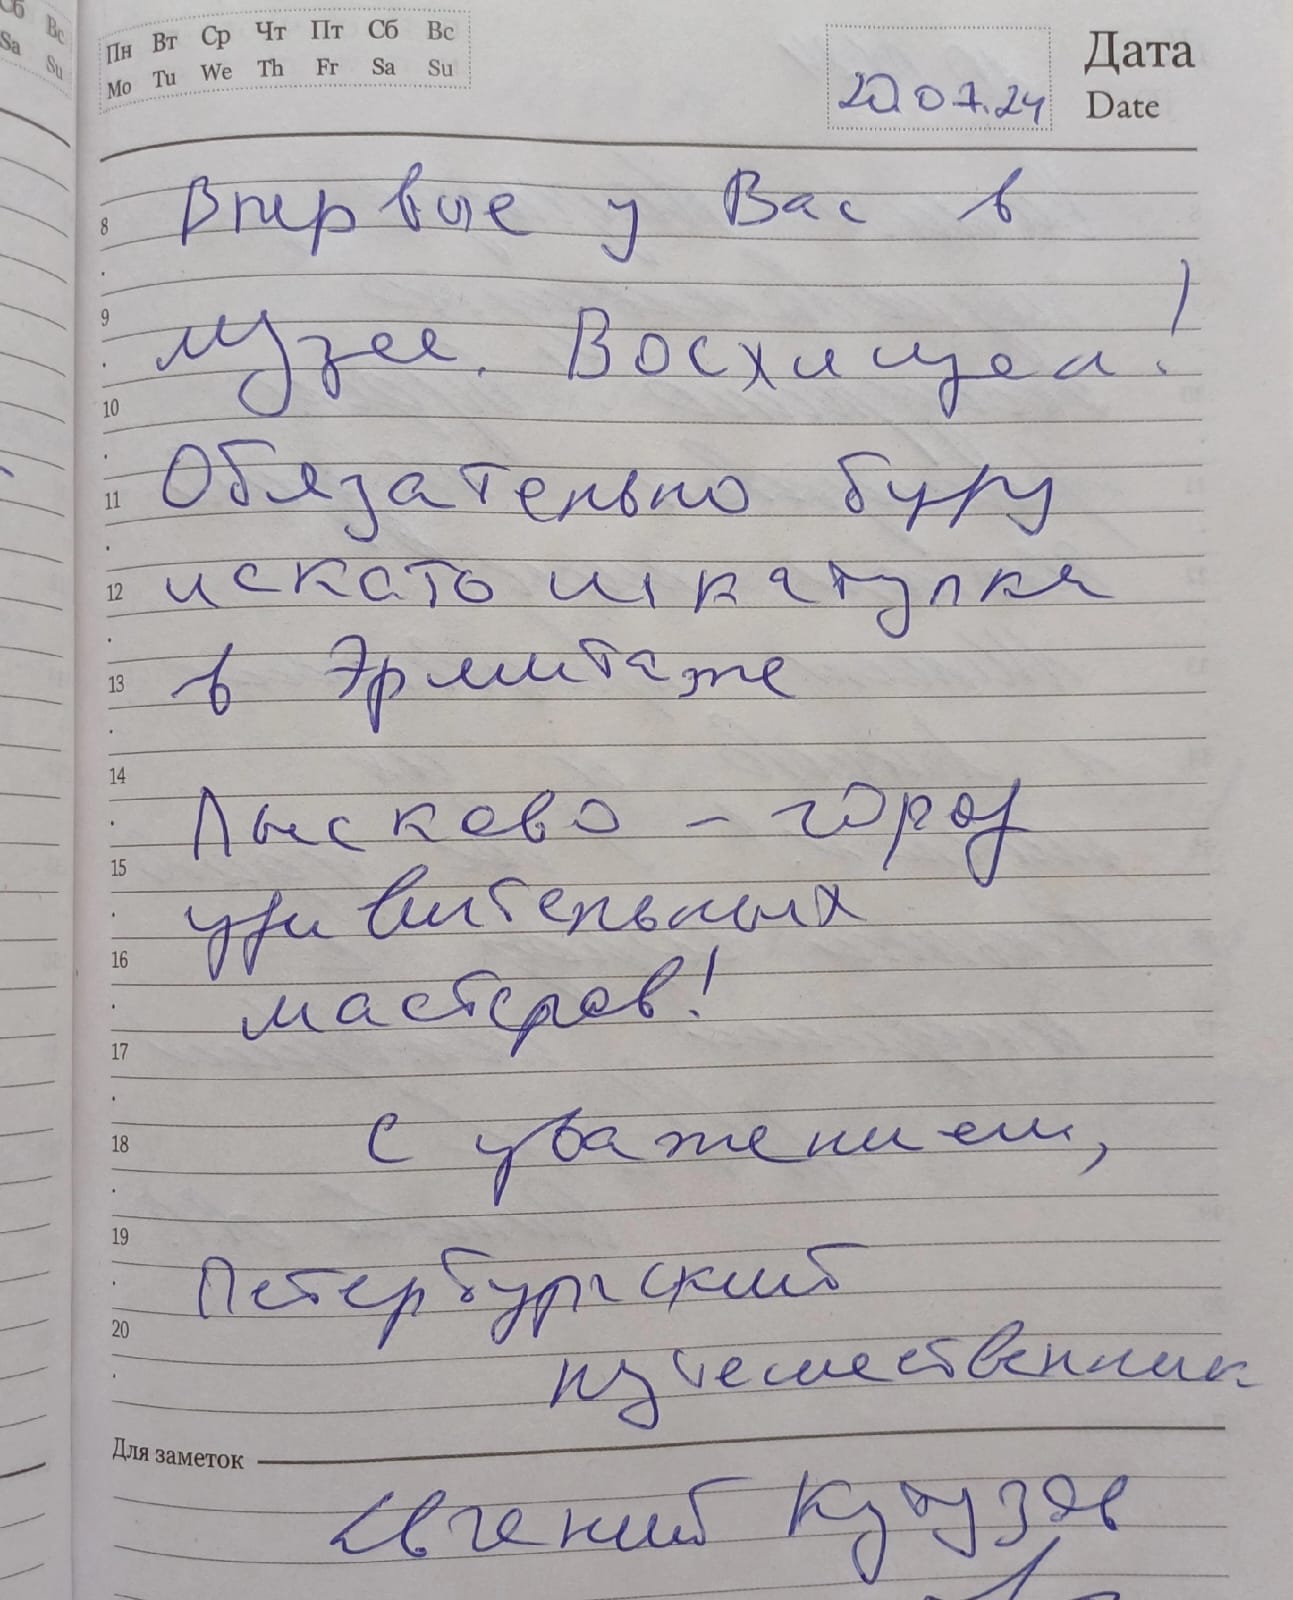 Сб Вс
Sa Su
Пн Вт Ср Чт Пт Сб Вс
Mo Tu We Th Fr Sa Su
20.07.24
Дата
Date
8 Впервые у Вас в
9 музее. Восхищен!
10
11 Обязательно буду
12 искать шкатулки
13 в Эрмитаже
14
Лысково - город
15
удивительных
16
мастеров!
17
18 С уважением,
19
Петербургский
20
путешественник
Для заметок
Евгений Кутузов